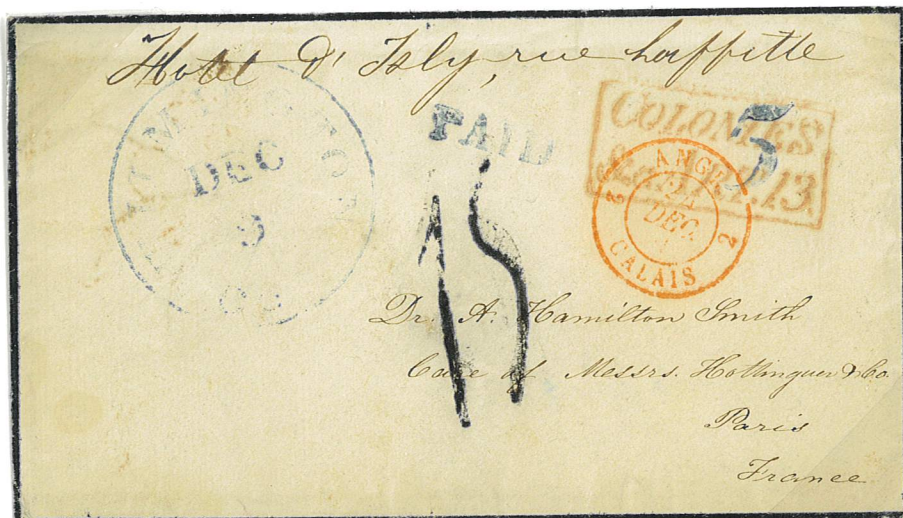 Hotel d' Isly, rue Laffitte
DEC
9
PAID
5
COLONIES
&c. ART. 13.
ANGL.
2 DEC. 2
CALAIS
15
Dr. A. Hamilton Smith
Care of Messrs. Hottinguer & Co.
Paris
France